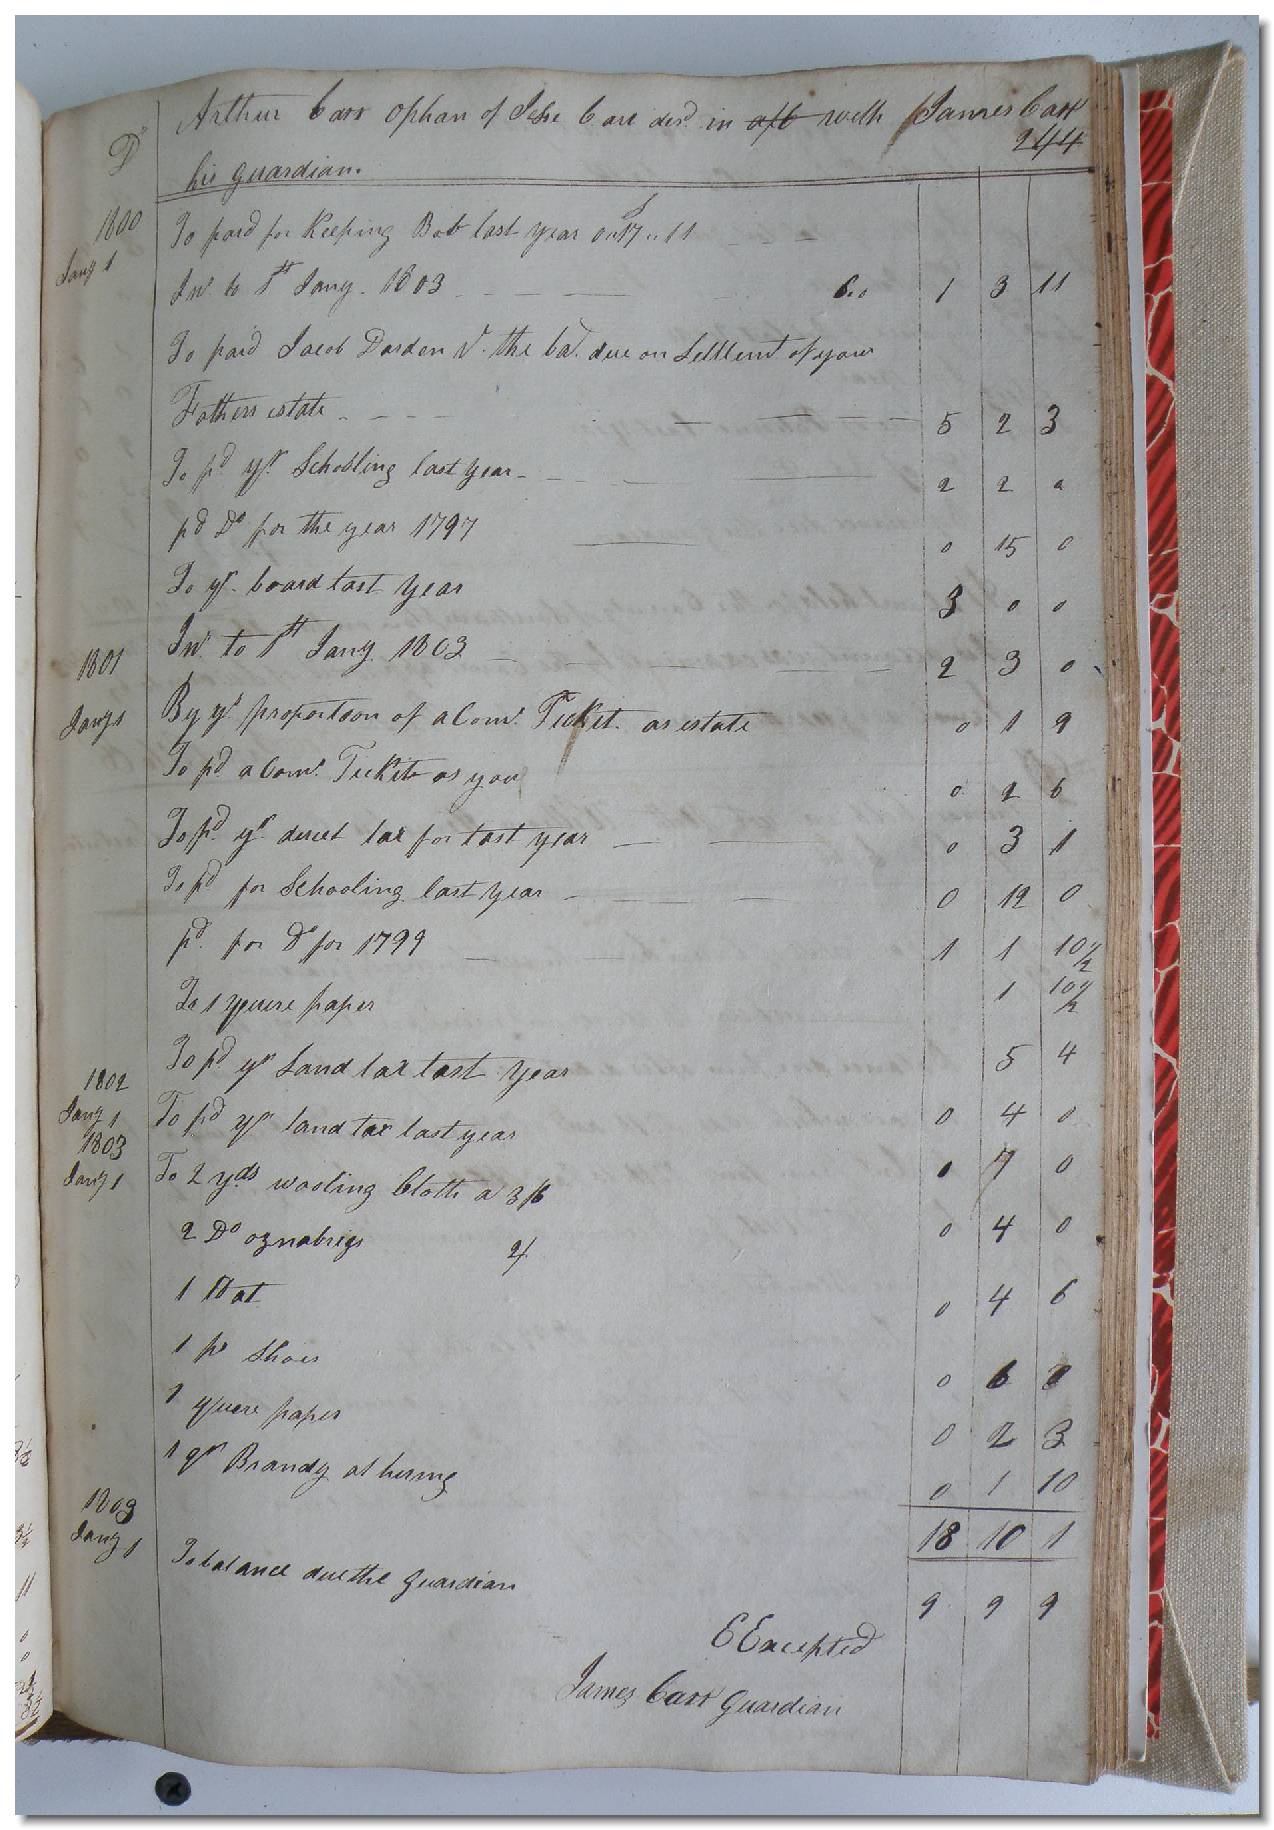 Dr Arthur Carr Ophan of Jesse Carr decd. in aft with James Carr
244
his guardian.
1800 To paid for Keeping Bob last year 0..17..11
Jany 1 Int. to 1st Jany. 1803 6.0 1 3 11
To paid Jacob Darden the bal. due on Settlemt of your
Fathers estate 5 2 3
To pd yr Schooling last year 2 2 0
pd Do for the year 1797 0 15 0
To yr board last year 3 0 0
1801 Int. to 1st Jany 1803 2 3 0
Jany 1 By yr proportion of a Comr. Ticket as estate 0 1 9
To pd a Comr. Tickit as you 0 2 6
To pd yr direct tax for last year 0 3 1
To pd for Schooling last year 0 12 0
pd. for Do for 1799 1 1 10 1/2
To 1 quere paper 1 10 1/2
To pd yr Land tax last Year 5 4
1802
Jany 1 To pd yr land tax last year 0 4 0
1803
Jany 1 To 2 yds wooling Cloth a 3/6 0 7 0
2 Do oznabrigs 2/ 0 4 0
1 Hat 0 4 6
1 pr Shoes 0 6 0
1 quere paper 0 2 3
1 qrt Brandy at hiring 0 1 10
18 10 1
1803
Jany 1 To balance due the Guardian 9 9 9
E Excepted
James Carr Guardian